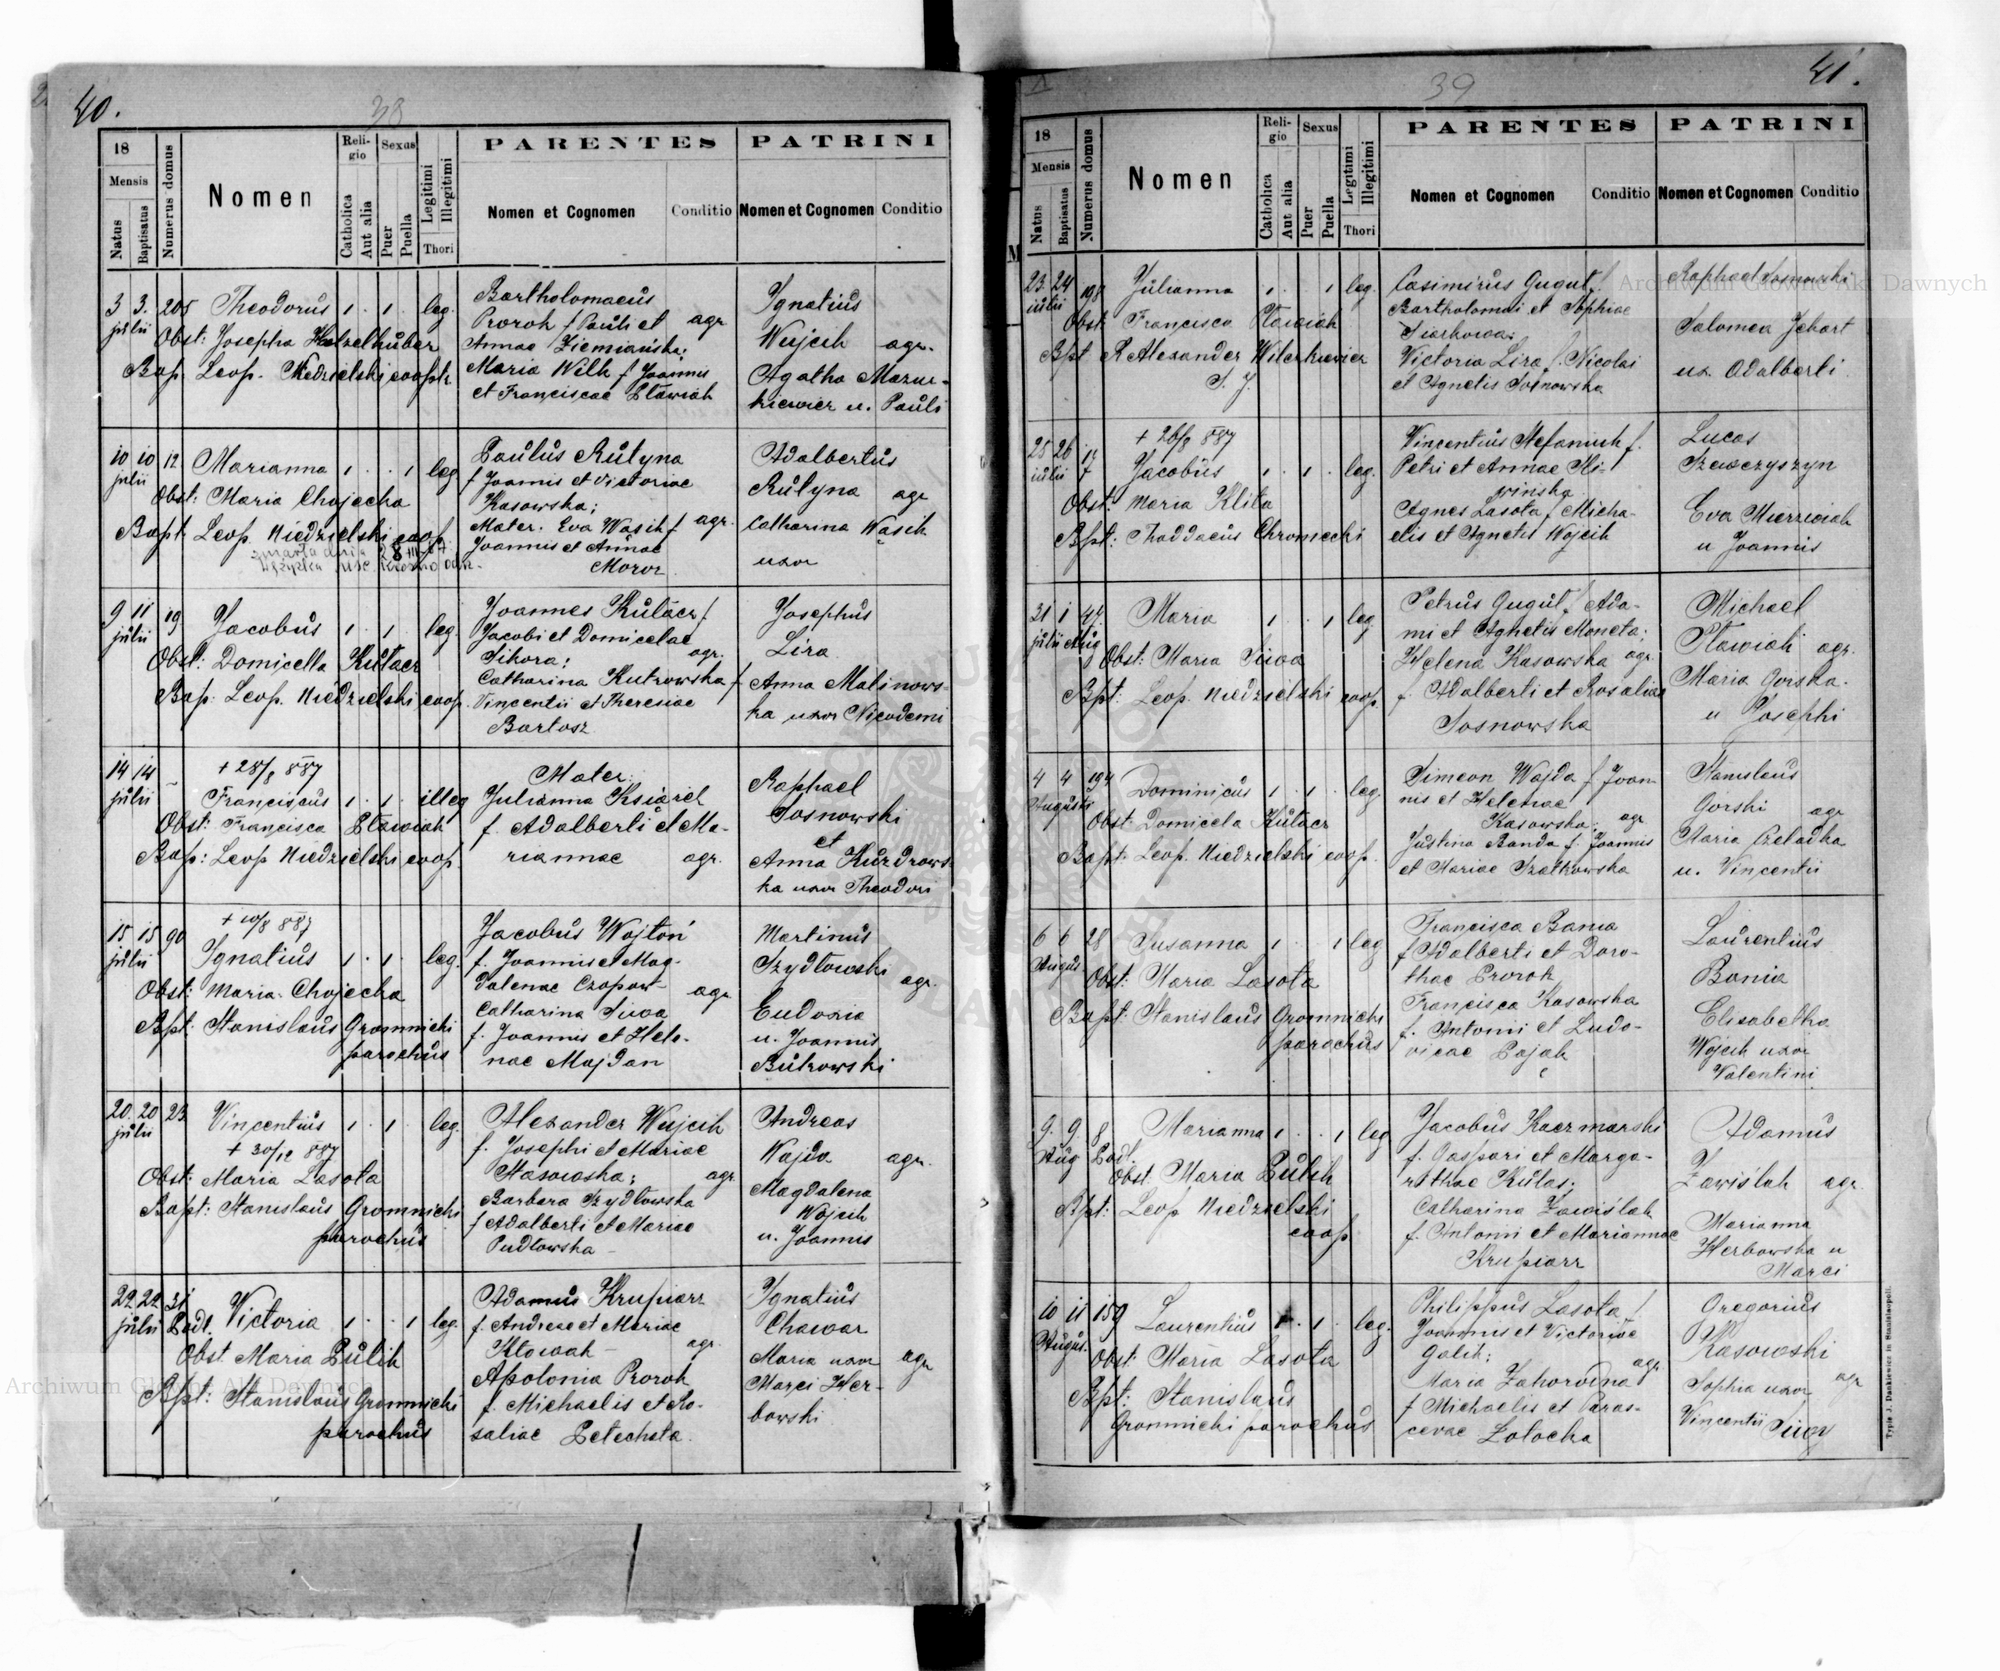 40.
38
18
Mensis
Natus
Baptisatus
Numerus domus
Nomen
Religio
Catholica
Aut alia
Sexus
Puer
Puella
Legitimi
Illegitimi
Thori
PARENTES
Nomen et Cognomen
Conditio
PATRINI
Nomen et Cognomen
Conditio
3 3. 205 Theodorus 1 · 1 · leg.
julii
Obst: Josepha Holzelhuber
Bap. Leop. Niedzielski cooptr.
Bartholomaeus
Prorok f Pauli et agr
Annae Ziemiańska;
Maria Wilk f Joannis
et Franciscae Pławiak
Ignatius
Wujcik agr.
Agatha Mazur-
kiewicz u. Pauli
10 10 12 Marianna 1 · · 1 leg
julii
Obst: Maria Chojecka
Bapt. Leop. Niedzielski coop.
Paulus Rutyna
f Joannis et Victoriae
Kasowska;
Mater. Eva Wąsik f agr.
Joannis et Annae
Moroz
Adalbertus
Rutyna agr
Catharina Wąsik
uxor
9 11 19 Jacobus 1 · 1 · leg.
julii
Obst: Domicella Kutacz
Bap. Leop. Niedzielski coop.
Joannes Kutacz f
Jacobi et Domicelae
Sikora; agr.
Catharina Kutrowska f
Vincentii et Theresiae
Bartosz
Josephus
Lira
Anna Malinows-
ka uxor Nicodemi
14 14 – + 28/8 887
julii
Franciscus 1 · 1 · illeg
Obst: Francisca Pławiak
Bap: Leop Niedzielski coop.
Mater:
Julianna Książek
f. Adalberti et Ma-
riannae agr.
Raphael
Sosnowski
et
Anna Kurdrows-
ka uxor Theodori
15 15 90 + 10/8 887
julii
Ignatius 1 · 1 · leg.
Obst: Maria Chojecka
Bpt: Stanislaus Gromnicki
parochus
Jacobus Wojtoń
f. Joannis et Mag-
dalenae Czopow- agr
Catharina Suwa
f. Joannis et Hele-
nae Majdan
Martinus
Szydłowski agr.
Eudoxia
u. Joannis
Butrowski
20 20 23 Vincentius 1 · 1 · leg.
julii
+ 30/12 887
Obst: Maria Lasota
Bapt: Stanislaus Gromnicki
parochus
Alexander Wujcik
f. Josephi et Mariae
Kasowska; agr
Barbara Szydłowska
f Adalberti et Mariae
Pudłowska –
Andreas
Wajda agr.
Magdalena
Wojcik
u. Joannis
22 22 31 Victoria 1 · · 1 leg.
julii
Obst Maria Pulik
Bpt: Stanislaus Gromnicki
parochus
Adamus Krupiarz
f. Andreae et Mariae
Kłowak – agr.
Apolonia Prorok
f. Michaelis et Ro-
saliae Petechsta.
Ignatius
Chawar
Maria uxor agr
Marci Her-
bowski
41.
39
18
Mensis
Natus
Baptisatus
Numerus domus
Nomen
Religio
Catholica
Aut alia
Sexus
Puer
Puella
Legitimi
Illegitimi
Thori
PARENTES
Nomen et Cognomen
Conditio
PATRINI
Nomen et Cognomen
Conditio
23 24 198 Julianna 1 · · 1 leg.
julii
Obst. Francisca Pławiak
Bpt R Alexander Witerkiewicz
S. J.
Casimirus Gugut f
Bartholomei et Sophiae
Siarkowa;
Victoria Lira f. Nicolai
et Agnetis Sosnowska
Raphael Sosnowski
Salomea Jekart
ux. Adalberti
25 26 + 26/8 887
julii
Jacobus 1 · 1 · leg.
Obst: Maria Klita
Bpt: Thaddaeus Chromecki
Vincentius Stefaniuk f.
Petri et Annae
Agnes Lasota f. Micha-
elis et Agnetis Wojcik
Lucas
Szewczyszyn
Eva Mierzwiak
u Joannis
31 1 44 Maria 1 · · 1 leg
julii Aug
Obst: Maria Suwa
Bpt: Leop. Niedzielski coop.
Petrus Gugut f Ada-
mi et Agnetis Moneta;
Helena Kasowska agr.
f. Adalberti et Rosaliae
Sosnowska
Michael
Pławiak agr.
Maria Gorska.
u Josephi
4 4 194 Dominicus 1 · 1 · leg.
Augusti
Obst: Domicela Kutacz
Bapt: Leop. Niedzielski coop.
Simeon Wajda f. Joan
nis et Helenae
Kasowska; agr
Justina Banda f. Joannis
et Mariae Szatkowska
Stanislaus
Gorski agr
Maria Czeladka
u. Vincentii
6 6 28 Susanna 1 · · 1 leg
Augus.
Obst: Maria Lasota
Bapt: Stanislaus Gromnicki
parochus
Francisca Bania
f Adalberti et Doro-
thae Prorok
Francisca Kasowska
f. Antonii et Ludo-
vicae Pająk
Laurentius
Bania
Elisabetha
Wojcik uxor
Valentini
9. 9. 8 Marianna 1 · · 1 leg
Aug
Obst. Maria Pulik
Bpt: Leop Niedzielski
coop
Jacobus Kaczmarski
f. Caspari et Marga-
rethae Kulas;
Catharina Zawiślak
f. Antonii et Mariannae
Krupiarz
Adamus
Zawiślak agr.
Marianna
Herbowska u
Marci
10 11 159 Laurentius 1 · 1 · leg.
August.
Obst: Maria Lasota
Bpt: Stanislaus
Gromnicki parochus
Philippus Lasota f
Joannis et Victoriae
Golik; agr
Maria Zahorodna
f Michaelis et Paras-
cevae Zolocha
Gregorius
Kasowski
Sophia uxor agr
Vincentii Suwy
Typis J. Dankiewicz in Stanislaopoli.
Archiwum Główne Akt Dawnych
Archiwum Główne Akt Dawnych